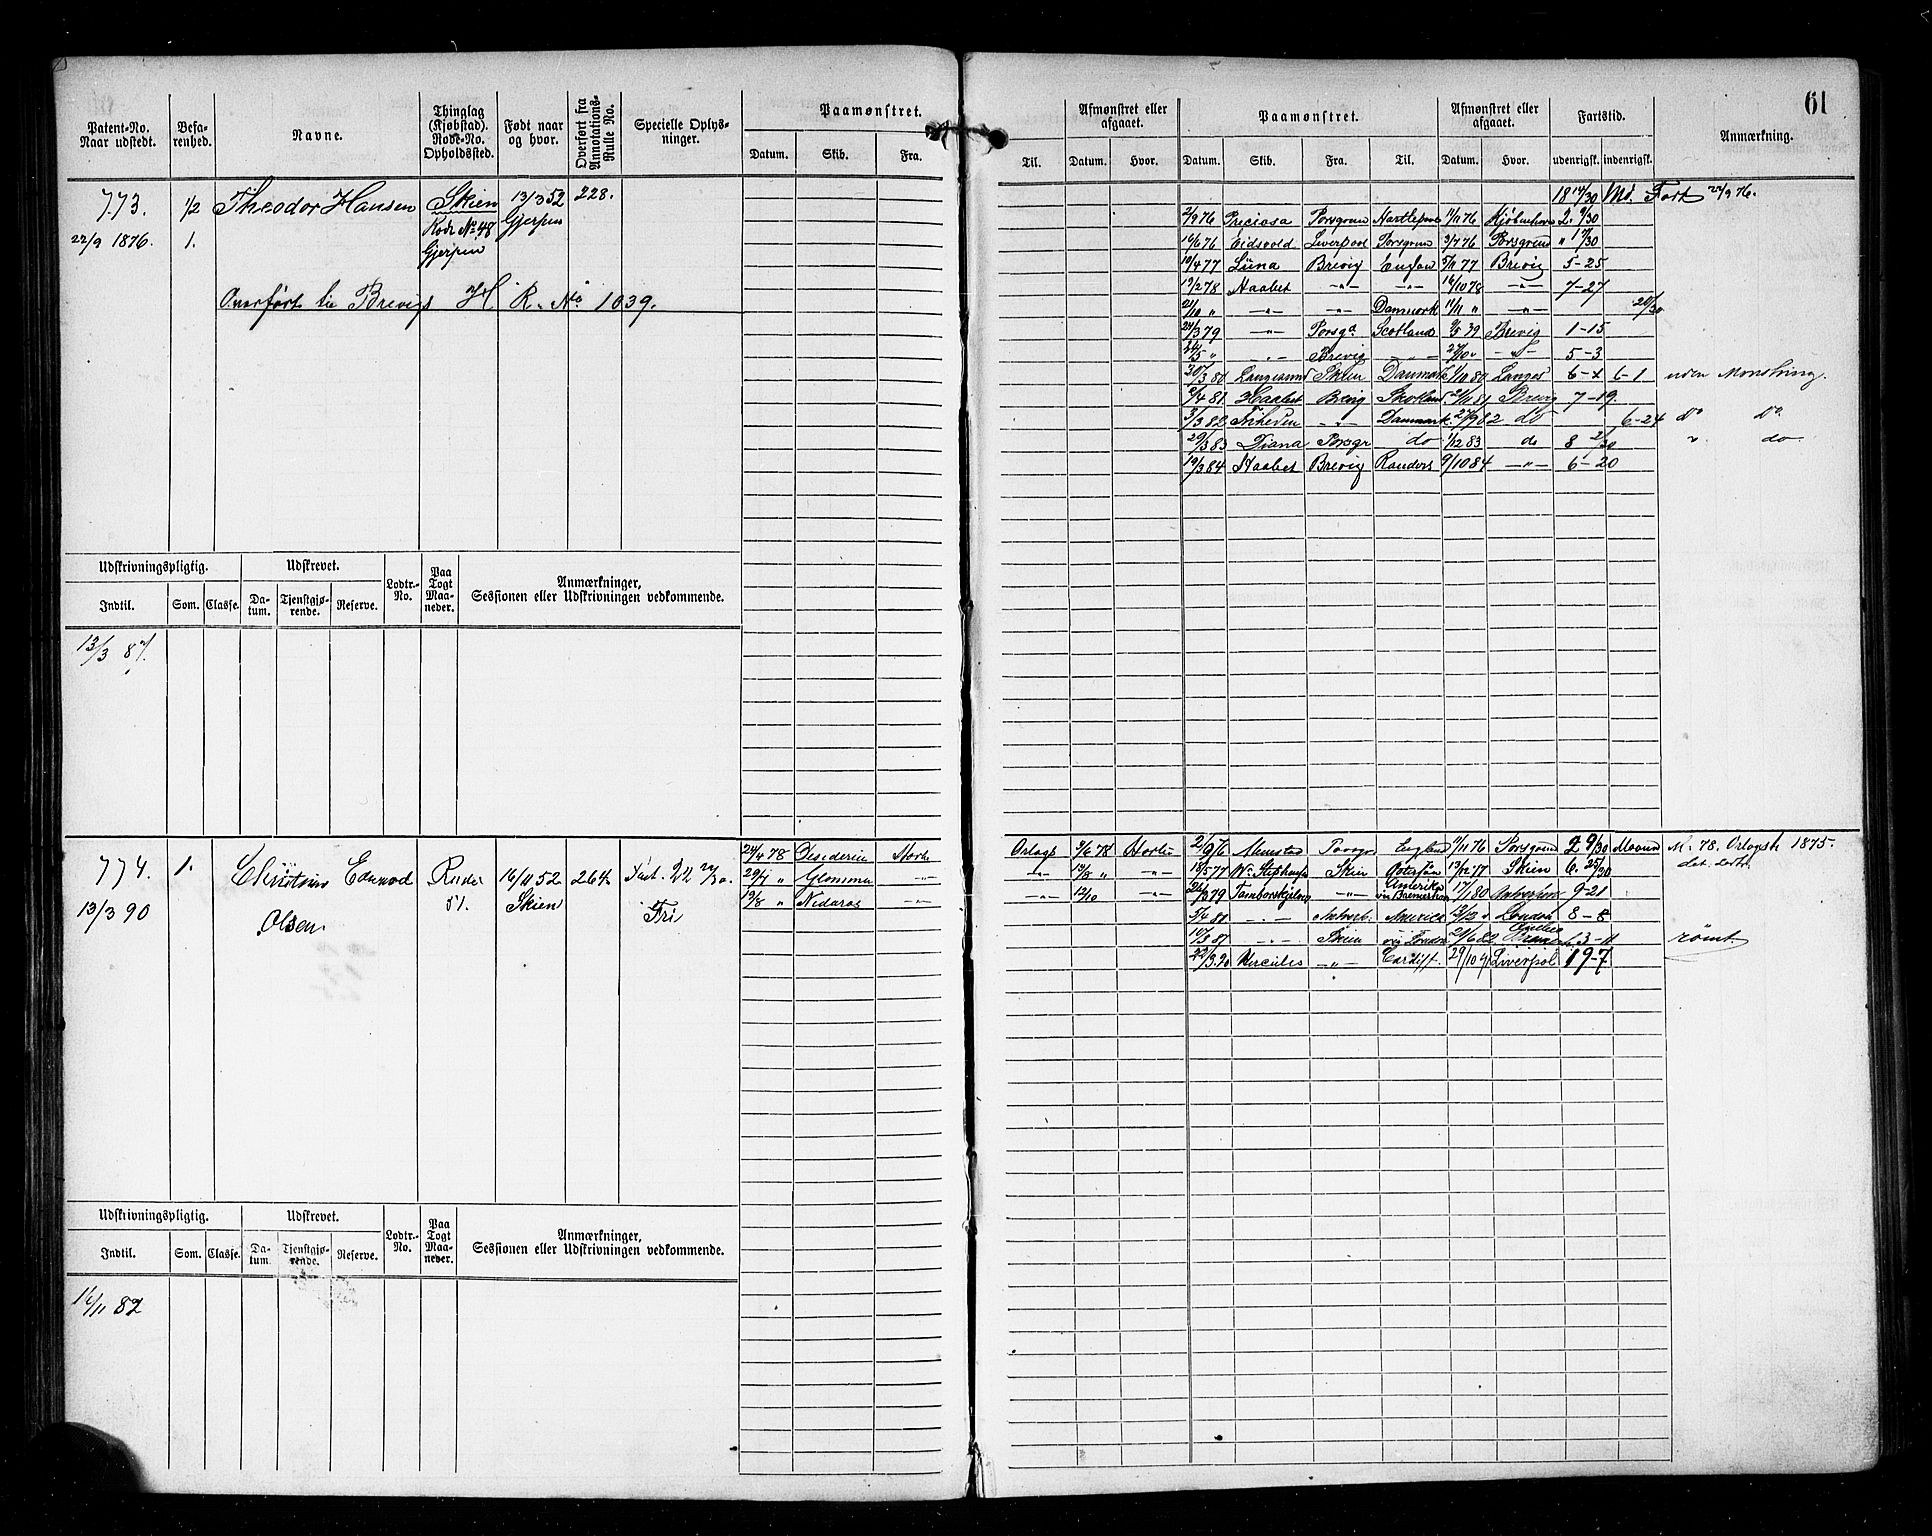 61
Patent-No. Naar udstedt. Befarenhed. Navne. Thinglag (Kjøbstad). Rode-No. Opholdssted. Født naar og hvor. Overført fra Annotations-Rulle No. Specielle Oplysninger. Paamønstret. Datum. Skib. Fra.
Til. Afmønstret eller afgaaet. Datum. Hvor. Paamønstret. Datum. Skib. Fra. Til. Afmønstret eller afgaaet. Datum. Hvor. Fartstid. udenrigsk. indenrigsk. Anmærkning.
773. 1/2 Theodor Hansen Skien 13/3 52 228.
22/9 1876. 1. Rode No 48 Gjerpen
Gjerpen
Overført til Brevigs H. R. No 1039.
18 14/30 Md. Fart 22/9 76.
2/9 76 Preciosa Porsgrun Hartlepool 11/11 76 Kjøbenhavn 2. 9/30
16/6 76 Eidsvold Liverpool Porsgrun 3/7 76 Porsgrund " 17/30
10/4 77 Luna Brevig Englan 5/11 77 Brevig 5-25
19/2 78 Haabet -"- -"- 16/10 78 -"- 7-27
21/10 " -"- -"- Danmark 11/11 " -"- 20/30
24/3 79 -"- Porsgd Scotland 9/5 79 Brevig 1-15
24/5 " -"- Brevig -"- 27/10 " -"- 5-3
30/3 80 Langesund Skien Danmark 1/10 80 Langes 6-4 6-1 uden Mønstring.
2/4 81 Haabet Brvig Skotland 21/11 81 Brevig 7-19.
3/3 82 Friheden -"- Danmark 27/9 82 do 6-24 do do
29/3 83 Diana Porsgr do 1/12 83 do 8 2/30 " do
19/3 84 Haabet Brevig Randers 9/10 84 -"- 6-20
Udskrivningspligtig. Udskrevet. Lodtr.-No. Paa Togt Maaneder. Anmærkninger, Sessionen eller Udskrivningen vedkommende.
Indtil. Som. Classe. Datum. Tjenstgjørende. Reserve.
13/3 87.
774. 1. Christian Edvard Olsen Rode 51. 16/11 52 Skien 264 Fart. 22 22/30. Fri
13/3 90
24/4 78 Desideria Horte Orlogs 3/6 78 Horten 2/9 76 Almstad Porsgr England 11/11 76 Porsgrund 2 9/30 Maaned M. 78. Orlogsk 1875.
29/7 " Glommen -"- -"- 14/8 " -"- 10/5 77 Wm Stephens Skien Østersøn 13/12 77 Skien 6. 25/30 det. Lovts
19/8 " Nidaros -"- -"- 12/10 -"- 28/3 79 Tamborskjelven -"- Amerika 17/1 80 Antverpen 9-21
5/4 81 -"- Antverb. America 12/2 " London 8-8
10/8 81 -"- Skien via London 21/6 82 13-11 rømt.
22/3 90 Hercules -"- Cardiff. 29/10 91 Liverpol 19-7
Udskrivningspligtig. Udskrevet. Lodtr.-No. Paa Togt Maaneder. Anmærkninger, Sessionen eller Udskrivningen vedkommende.
Indtil. Som. Classe. Datum. Tjenstgjørende. Reserve.
16/11 82